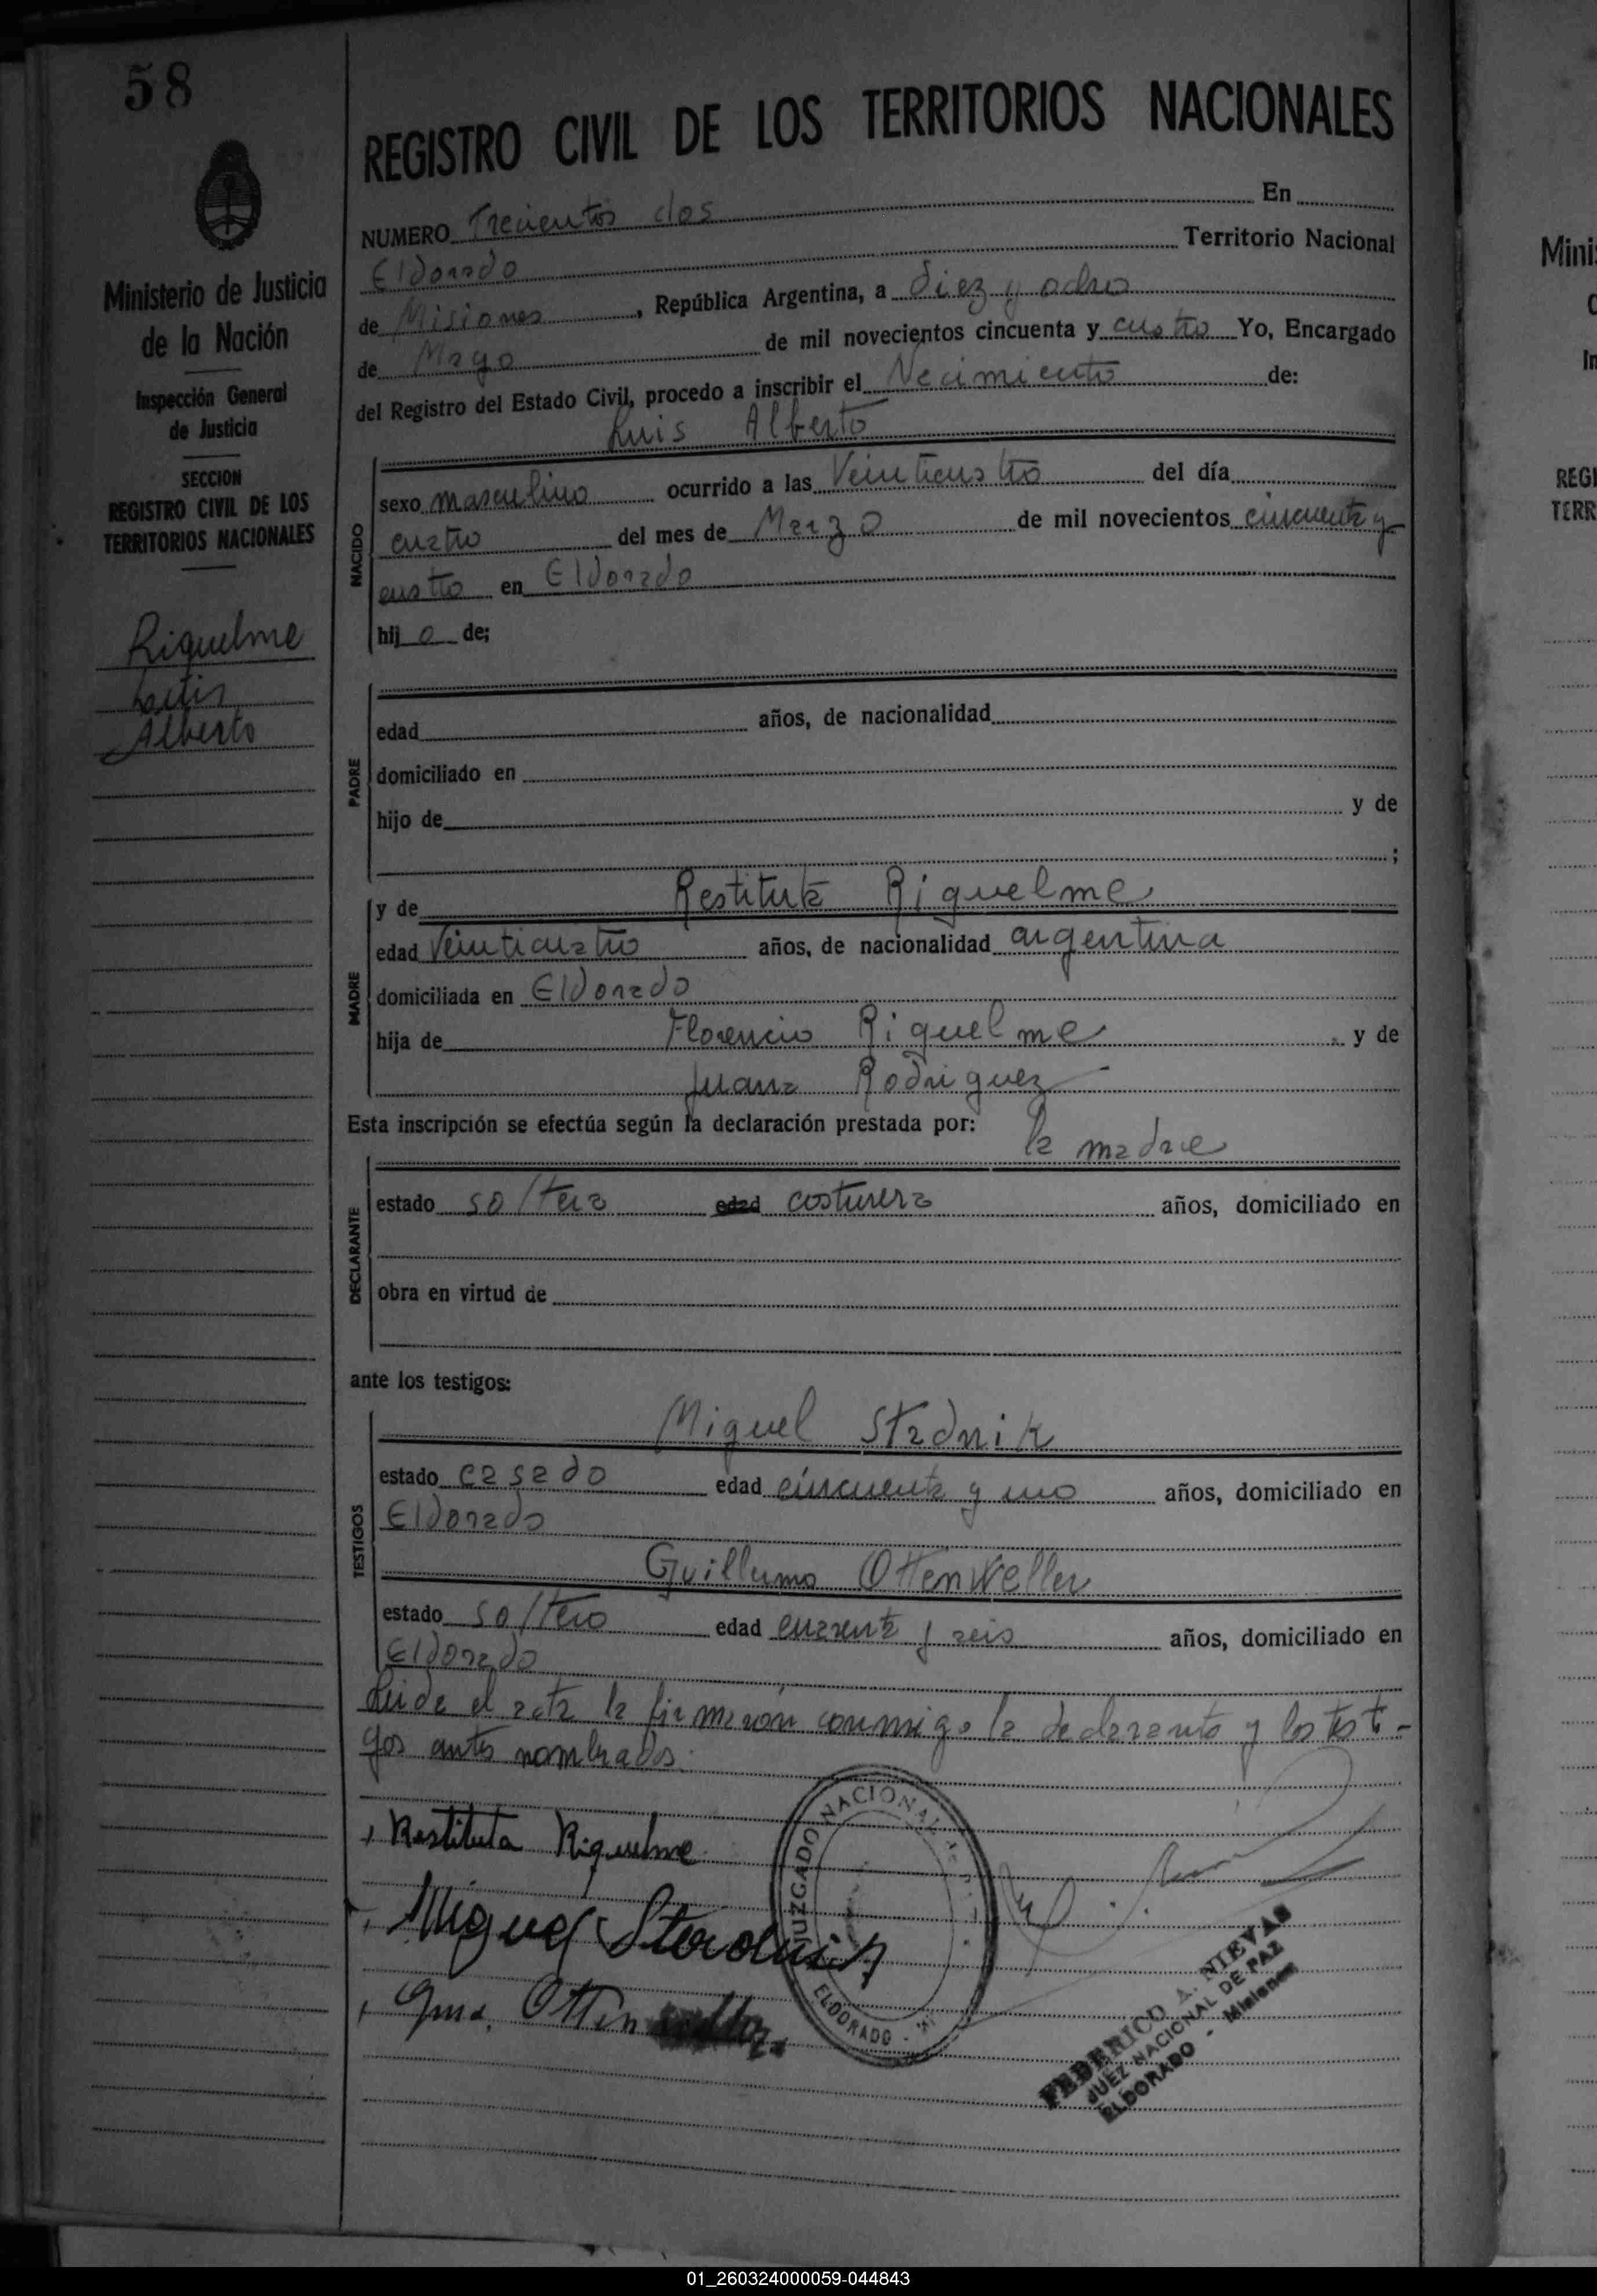 58
Ministerio de Justicia
de la Nación
Inspección General
de Justicia
SECCION
REGISTRO CIVIL DE LOS
TERRITORIOS NACIONALES
Riquelme
Luis
Alberto
REGISTRO CIVIL DE LOS TERRITORIOS NACIONALES
NUMERO Trecientos dos En
Eldorado Territorio Nacional
de Misiones, República Argentina, a diez y ocho
de Mayo de mil novecientos cincuenta y cuatro Yo, Encargado
del Registro del Estado Civil, procedo a inscribir el Nacimiento de:
Luis Alberto
NACIDO
sexo masculino ocurrido a las Veinticuatro del día
cuatro del mes de Marzo de mil novecientos cincuenta y
cuatro en Eldorado
hijo de;
PADRE
edad años, de nacionalidad
domiciliado en
hijo de y de
;
MADRE
y de Restituta Riquelme
edad Veinticuatro años, de nacionalidad argentina
domiciliada en Eldorado
hija de Florencio Riquelme y de
Juana Rodriguez
Esta inscripción se efectúa según la declaración prestada por:
la madre
DECLARANTE
estado soltera edad costurera años, domiciliado en
obra en virtud de
ante los testigos:
TESTIGOS
Miguel Stadnik
estado casado edad cincuenta y uno años, domiciliado en
Eldorado
Guillermo Ottenweller
estado soltero edad cuarenta y seis años, domiciliado en
Eldorado
Leida el acta la firmaron conmigo la declarante y los testi-
gos antes nombrados.
Restituta Riquelme
Miguel
Gmo. Otten
JUZGADO NACIONAL
ELDORADO
FEDERICO A. NIEVAS
JUEZ NACIONAL DE PAZ
ELDORADO - Misiones
Mini
In
REGI
TERR
01_260324000059-044843